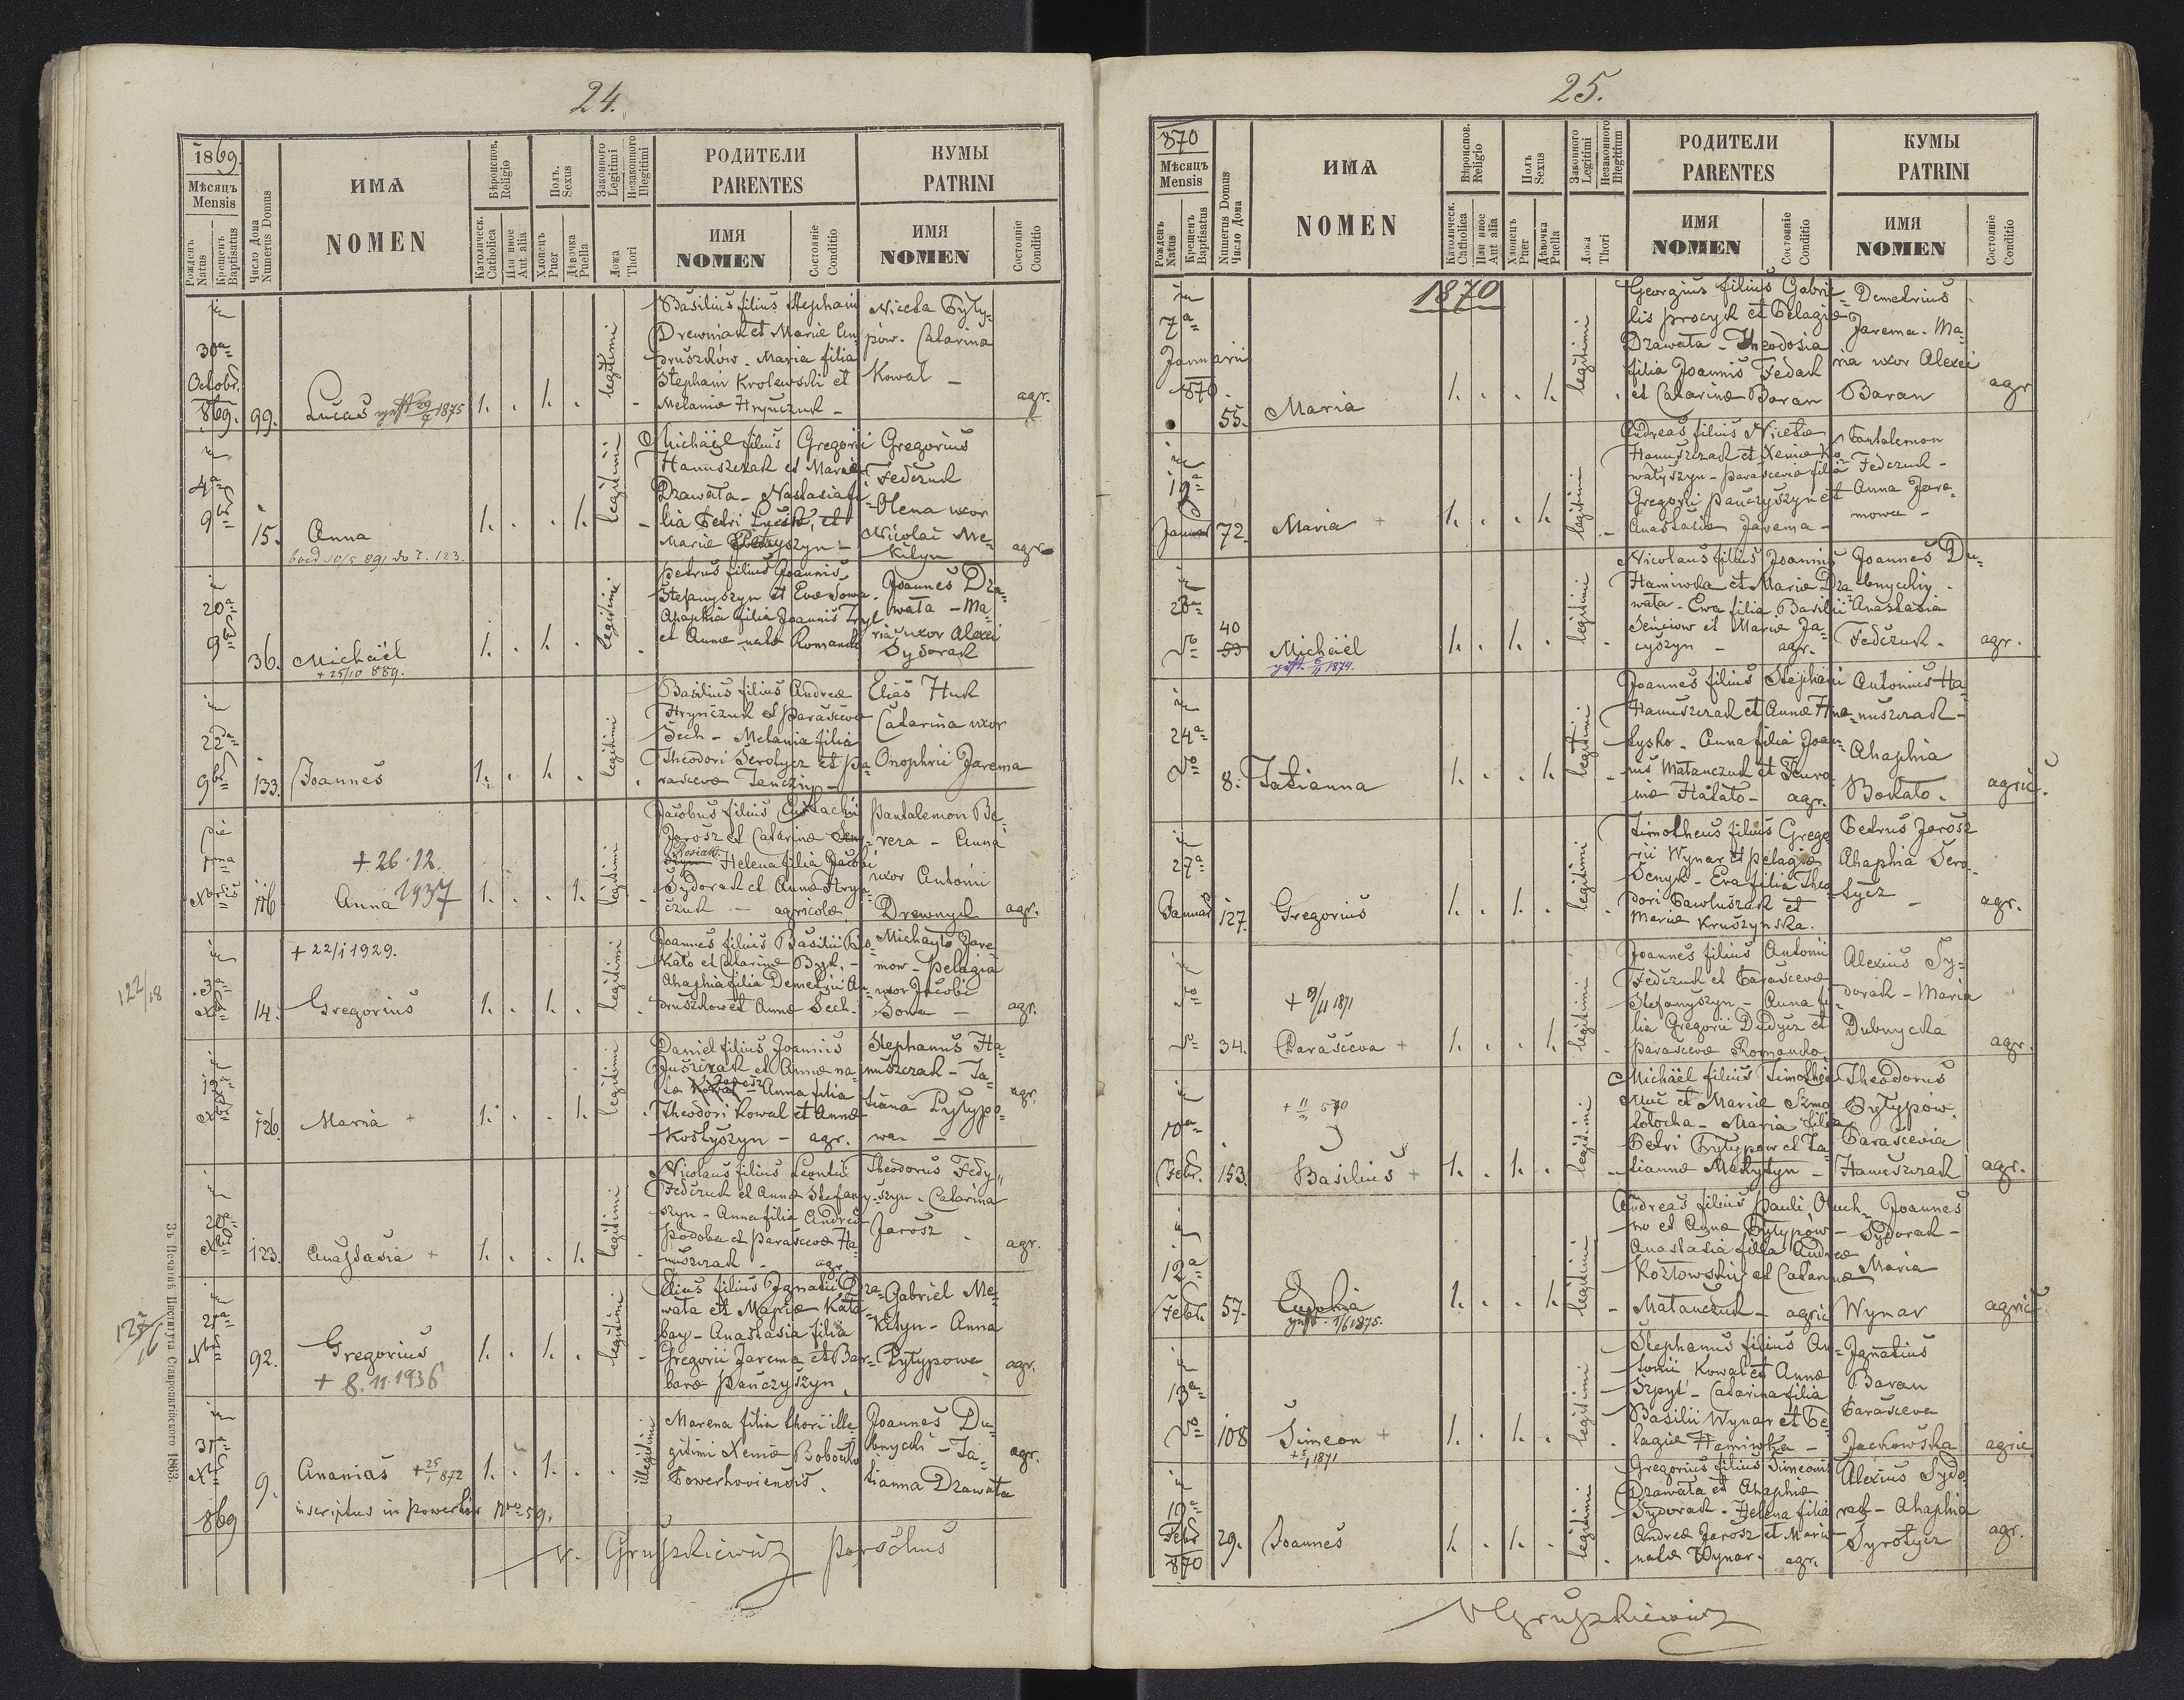 24.
1869.
Мѣсяцъ
Mensis
Рожденъ
Natus
Крещенъ
Baptisatus
Число Дома
Numerus Domus
ИМѦ
NOMEN
Вѣроиспов.
Religio
Католическ.
Catholica
Или иное
Aut alia
Полъ.
Sexus
Хлопецъ
Puer
Дѣвочка
Puella
Законного
Legitimi
Незаконного
Illegitimi
Ложа
Thori
РОДИТЕЛИ
PARENTES
ИМЯ
NOMEN
Состояніе
Conditio
КУМЫ
PATRINI
ИМЯ
NOMEN
Состояніе
Conditio
30a
Octobr.
869.
99.
Lucas
1875
1. . 1. .
legitimi
Basilius filius Stephani
Drewniak et Mariæ An-
druszków. Maria filia
Stephani Krolewski et
Melaniæ Hryńczuk -
Niceta Pyly-
pów. Catarina
Kowal -
agr.
4a
9br
15.
Anna
1. . . 1.
legitimi
Michäel filius Gregorii
Hanuszczak et Mariæ
Dzawała - Nastasia fi-
lia Petri Łycak, et
Mariæ
Gregorius
Fedczuk
Olena uxor
Nicolai Me-
kityn
agr.
20a
9br
36.
Michäel
+ 25/10 889.
1. . 1. .
legitimi
Petrus filius Joannis
Stefanyszyn et Evæ Sowa.
Ahaphia filia Joannis Zryl
et Annæ nata Romanko
Joannes Dza-
wała - Ma-
ria uxor Alexei
Sydorak
22da
9br
133.
Joannes
1. . 1. .
legitimi
Basilius filius Andreæ
Hryńczuk et Parascevæ
Sech - Melania filia
Theodori Serotycz et Pa-
rascevæ Janczyn -
Elias Huk
Catarina uxor
Onophrii Jarema
Die
1ma
Xbris
116
+ 26.12.
Anna 1937
1. . . 1.
legitimi
Jacobus filius Eustachii
Jarosz et Catarinæ
Rosiak.
Helena filia Jacobi
Sydorak et Annæ Hryn-
czuk - agricolæ
Pantalemon Be-
rera - Anna
uxor Antonii
Drewnyk
agr.
122/18
3a
Xbr
14.
+ 22/1 1929.
Gregorius
1. . 1. .
legitimi
Joannes filius Basilii Bo-
kało et Catarinæ Byk. -
Ahaphia filia Demetrii An-
druszkow et Annæ Sech.
Michayło Jare-
mow - Pelagia
uxor Jacobi
Sowa -
agr.
19a
Xbr
126.
Maria +
1. . . 1.
legitimi
Daniel filius Joannis
Duszczak et Annæ na-
tæ Anna filia
Theodori Kowal et Annæ
Kostyszyn - agr.
Stephanus Ha-
nuszczak - Ta-
tiana Pylypo-
wa. -
agr.
Xbr
123.
Anastasia +
1. . . 1.
legitimi
Nicolaus filius Leontii
Fedczuk et Annæ Stefany-
szyn - Anna filia Andreæ
Podoba et Parascevæ Ha-
nuszczak - agr.
Theodorus Fedy-
szyn. Catarina
Jarosz
agr.
21a
Xbr
92.
Gregorius
+ 8.11.1936
1. . 1. .
legitimi
Elias filius Ignatii Dza-
wała et Mariæ Kata-
bay - Anastasia filia
Gregorii Jarema et Bar-
baræ Pańczyszyn.
Gabriel Me-
kityn - Anna
Pylypowa
agr.
31a
Xbr
869
9.
Ananias + 25/1 872
inscriptus in Powerhów Nro 59.
1. . 1. .
illegitimi
Marena filia thori ille-
gitimi Xeniæ Bobowko
Powerhoviensis.
Joannes Du-
bnycki - Ta-
tianna Dzawała
agr.
V. Gruszkiewicz parochus
Въ Печатнѣ Института Ставропигійского 1863.
25.
870
Мѣсяцъ
Mensis
Рожденъ
Natus
Крещенъ
Baptisatus
Numerus Domus
Число Дома
ИМѦ
NOMEN
Вѣроиспов.
Religio
Католическ.
Catholica
Или иное
Aut alia
Полъ
Sexus
Хлопецъ
Puer
Дѣвочка
Puella
Законного
Legitimi
Незаконного
Illegitimum
Ложа
Thori
РОДИТЕЛИ
PARENTES
ИМЯ
NOMEN
Состояніе
Conditio
КУМЫ
PATRINI
ИМЯ
NOMEN
Состояніе
Conditio
1870
7a
Januarii
870.
55.
Maria
1. . . 1.
legitimi
Georgius filius Gabrie-
lis Procyk et Pelagiæ
Dzawała - Theodosia
filia Joannis Fedak
et Catarinæ Baran
Demetrius
Jarema. Ma-
ria uxor Alexei
Baran
agr
19a
Januar
72.
Maria +
1. . . 1.
legitimi
Andreas filius Nicetæ
Hanuszczak et Xeniæ Ko-
walyszyn - Parascevia filia
Gregorii Pańczyszyn et
Anastasiæ Jarema -
Pantalemon
Fedczuk -
Anna Jare-
mowa -
23a
40
53
Michäel
1874.
1. . 1. .
legitimi
Nicolaus filius Joannis
Haniwka et Mariæ Dza-
wała - Ewa filia Basilii
Senciow et Mariæ Ja-
cyszyn - agr.
Joannes Du-
bnyckiy -
Anastasia
Fedczuk.
agr.
24a
8.
Tatianna
1. . . 1.
legitimi
Joannes filius Stephani
Hanuszczak et Annæ Hna-
tysko. Anna filia Joan-
nis Matanczuk et
Hałato - agr.
Antonius Ha-
nuszczak -
Ahaphia
Bokało.
agric.
27a
Januar
127.
Gregorius
1. . 1. .
legitimi
Timotheus filius Grego-
rii Wynar et Pelagiæ
Senyk - Eva filia Theo-
dori Pawłuszak et
Mariæ Kruszynska.
Petrus Jarosz
Ahaphia Sero-
tycz -
agr.
34.
+ 9/11 1871
Parasceva +
1. . . 1.
legitimi
Joannes filius Antonii
Fedczuk et Parascevæ
Stefanyszyn - Anna fi-
lia Gregorii Dudycz et
Parascevæ Romanko.
Alexius Sy-
dorak - Maria
Dubnycka
agr.
10a
Febr.
153.
+ 11 870
Basilius +
1. . 1. .
legitimi
Michäel filius Timothei
Muć et Mariæ Szmo-
łotocha - Maria filia
Petri Pylypow et Ta-
tiannæ Mekytyn -
Theodorus
Pylypów.
Parascevia
Hanuszczak
agr.
12a
Febr.
57.
Eudokia
1/6 1875.
1. . . 1.
legitimi
Andreas filius Pauli Oluch-
no et Annæ Pylypów -
Anastasia filia Andreæ
Kozłowskij et Catarinæ
Matanczuk - agric
Joannes
Sydorak -
Maria
Wynar
agric.
13a
108
Simeon +
+ 5/1 1871
1. . 1. .
legitimi
Stephanus filius An-
tonii Kowal et Annæ
Szpyt - Catarina filia
Basilii Wynar et Pe-
lagiæ Haniwka -
Ignatius
Baran
Parasceva
Jackowska
agric
19a
Febr
870
29.
Joannes
1. . 1. .
legitimi
Gregorius filius Simeonis
Dzawała et Ahaphiæ
Sydorak. Helena filia
Andreæ Jarosz et Mariæ
natæ Wynar. agr.
Alexius Sydo-
rak - Ahaphia
Syrotycz
agr.
V Gruszkiewicz